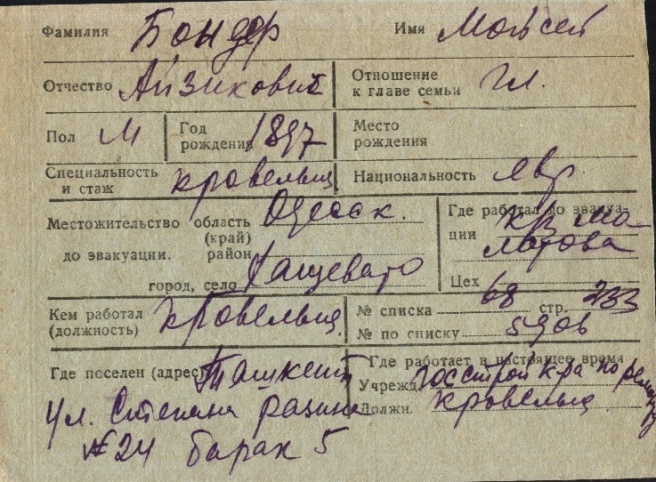 Фамилия Бондер Имя Мойсей
Отчество Айзикович Отношение к главе семьи гл.
Пол М Год рождения 1897 Место рождения
Специальность и стаж кровельщ Национальность евр.
Местожительство область Одесск. Где работал до эвакуа-
(край)
до эвакуации. район ции
город, село Хащевато Цех
Кем работал (должность) кровельщ № списка 68 стр. 233
№ по списку 5906
Где поселен (адрес) Ташкент Где работает в настоящее время
Учрежд.
ул. Степана Разина Должн. кровельщ.
№24 барак 5